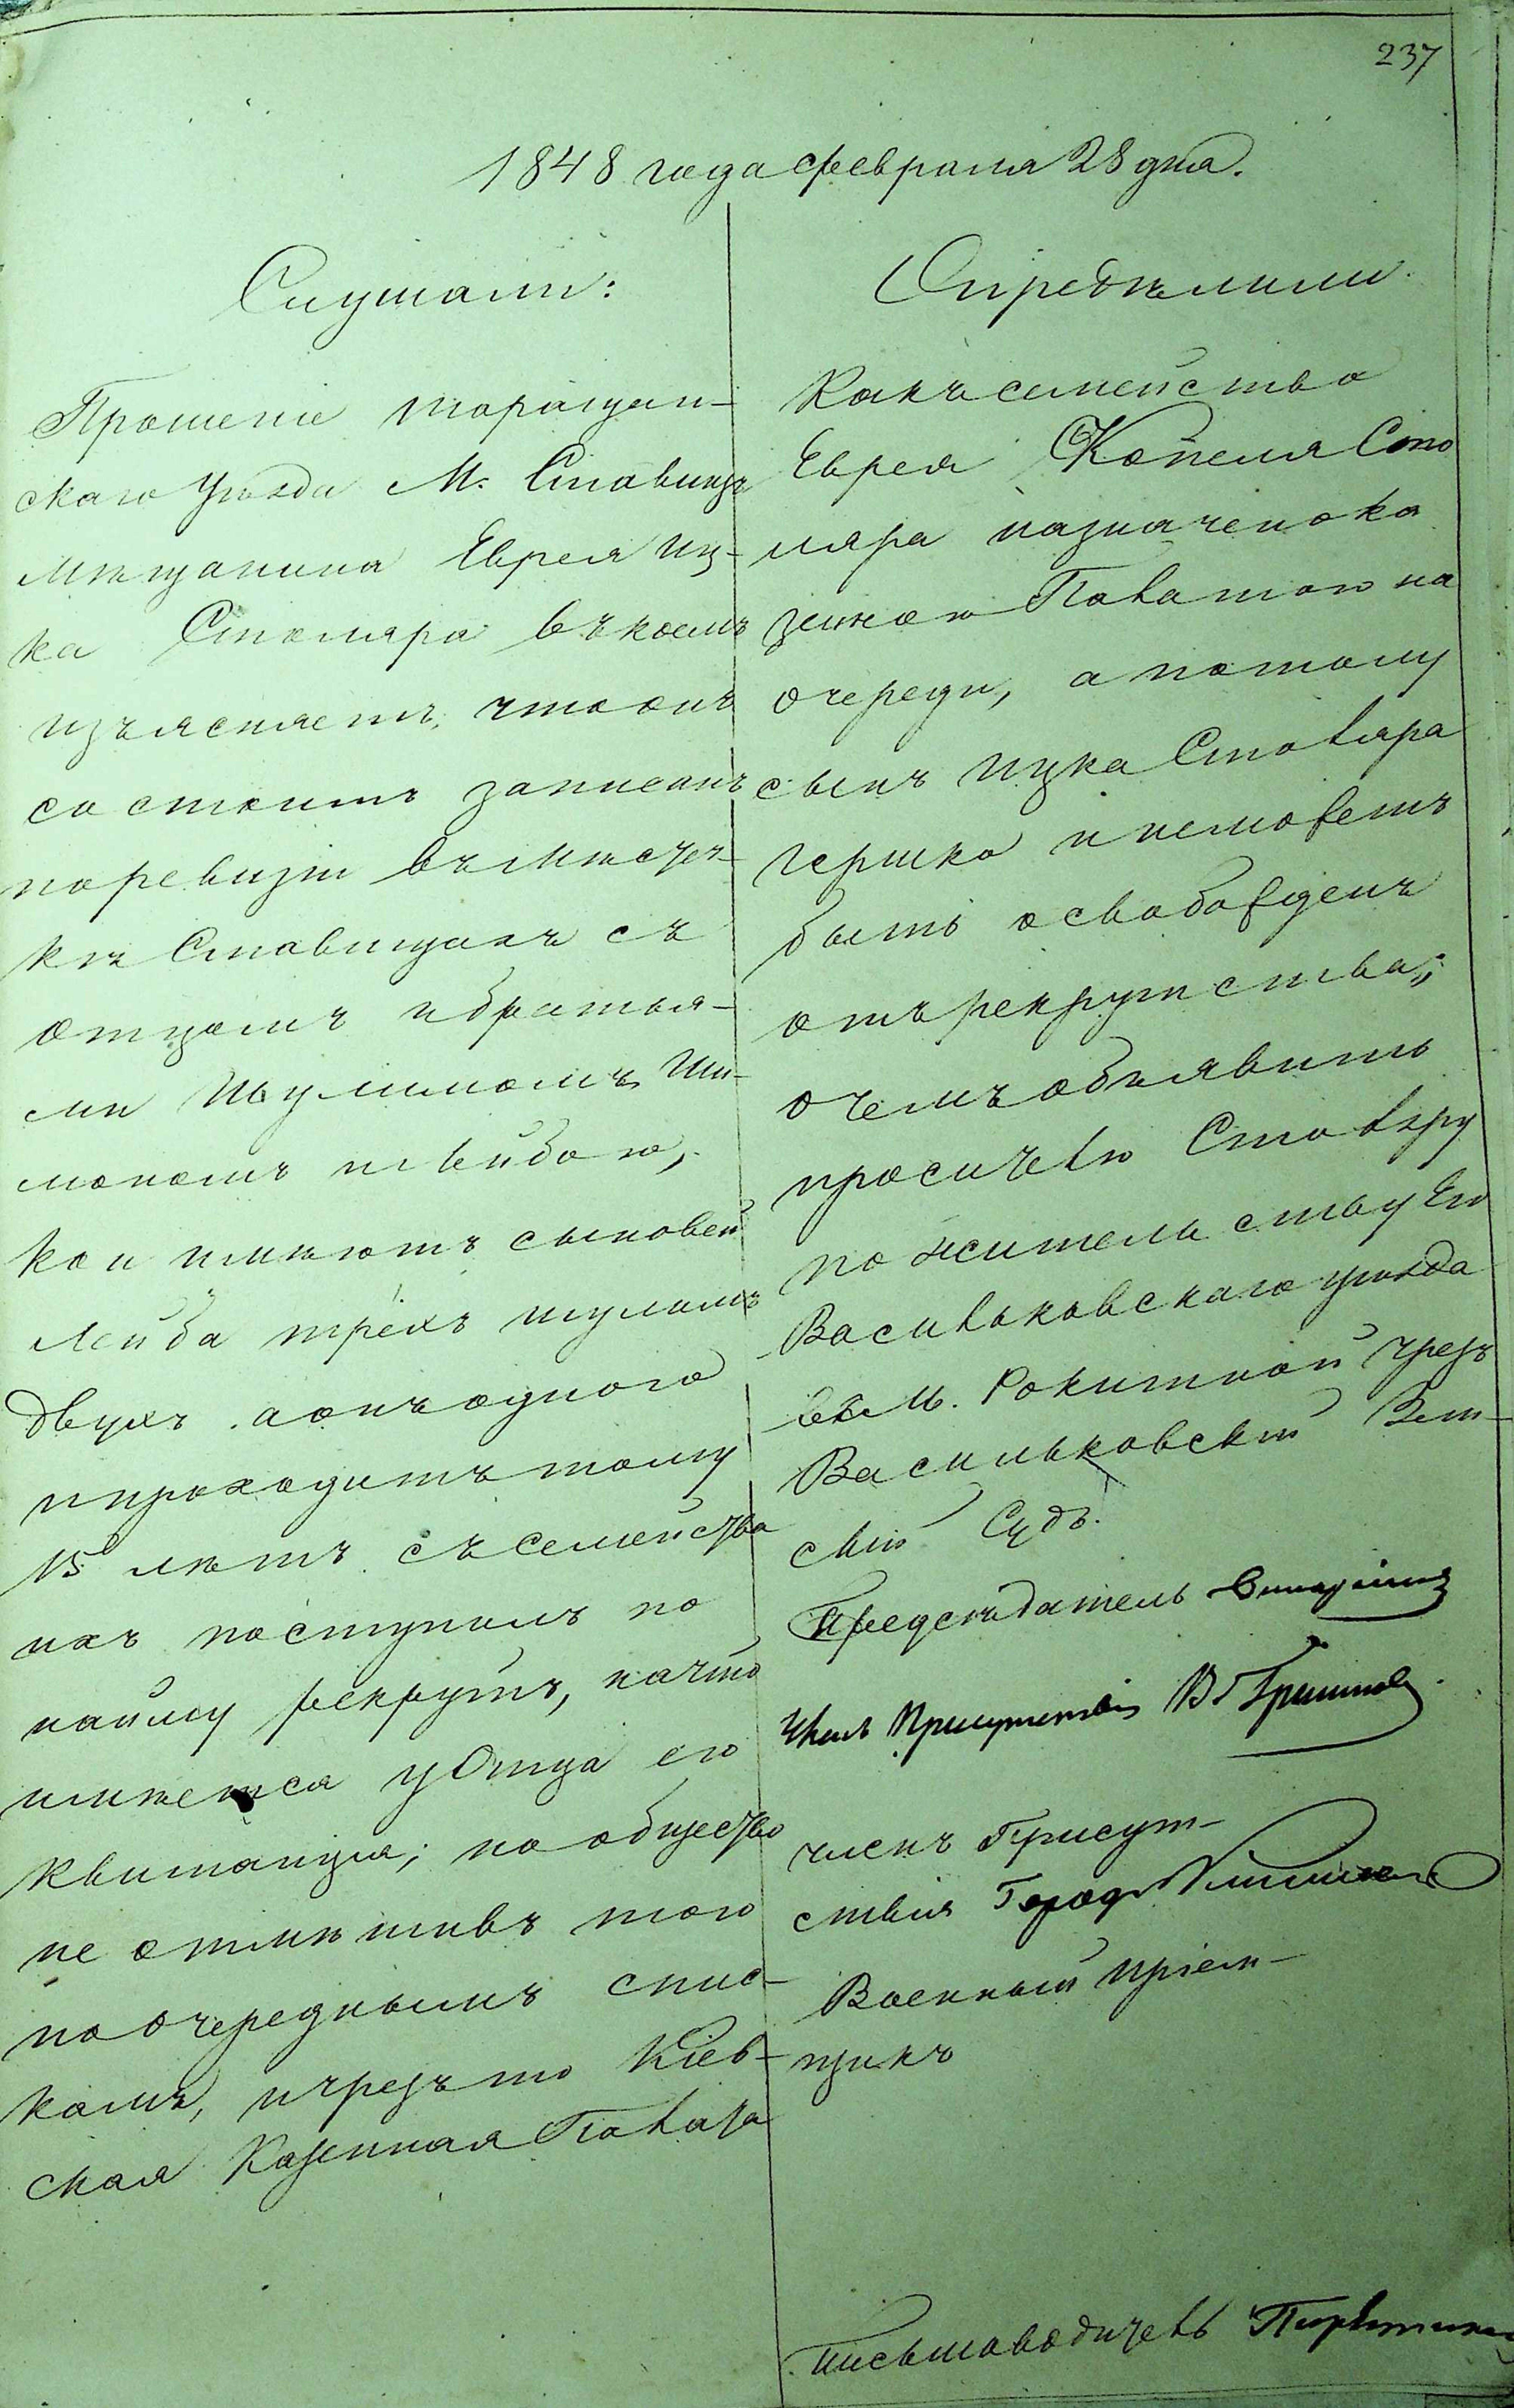 237
1848 года февраля 28 дня.
Слушали:
Прошеніе таращан-
скаго уѣзда М. Ставищъ
мѣщанина Еврея Иц-
ка Столяра въ коемъ
изъясняетъ, что онъ
состоитъ записанъ
по ревизіи въ мѣстеч-
кѣ Ставищахъ съ
отцомъ и братья-
ми Шулимомъ, Ши-
мономъ и Лейбою,
кои имѣютъ сыновей
Лейба трёхъ шулимъ
двухъ а онъ одного
и проходитъ тому
15 лѣтъ съ семейства
ихъ поступилъ по
найму рекрутъ, на что
имѣется у Отца его
квитанція; но общество
не отмѣтивъ того
по очереднымъ спис-
камъ, и чрезъ то Кіев-
ская Казенная Палата
Опредѣлили
Какъ семейство
Еврея Копеля Сто
ляра назначено ка
зенною Палатою на
очереди, а потому
сынъ Ицка Столяра
Гершко и неможетъ
быть освобожденъ
отъ рекрутства;
о чемъ объявить
просителю Столяру
по жительству Его
Васильковскаго уѣзда
въ М. Рокитной чрезъ
Васильковскій Зем-
скій Судъ.
Предсѣдатель
Членъ Присутствія
членъ Присут-
ствія Город
Военный пріем-
щикъ
Письмоводитель